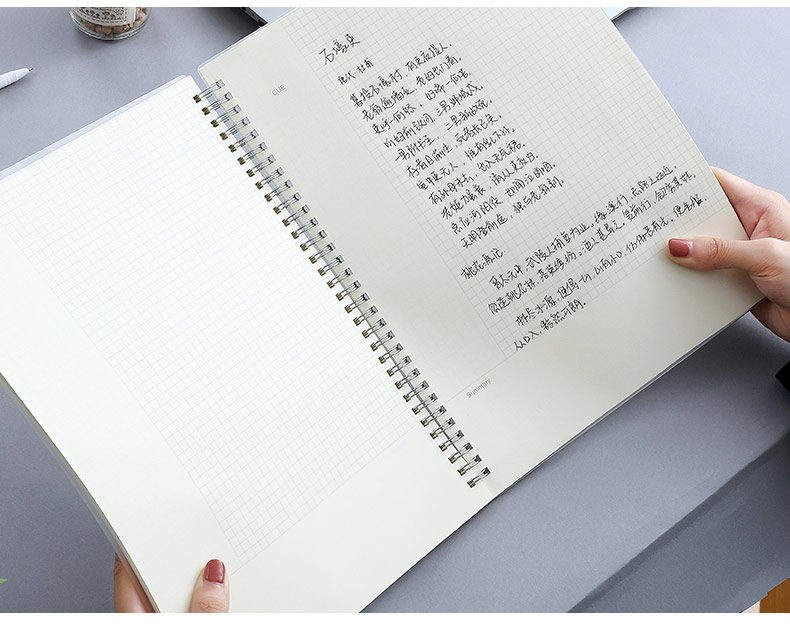 CUE
石壕吏
唐代：杜甫
暮投石壕村，有吏夜捉人。
老翁逾墙走，老妇出门看。
吏呼一何怒，妇啼一何苦。
听妇前致词，三男邺城戍。
一男附书至，二男新战死。
存者且偷生，死者长已矣。
室中更无人，惟有乳下孙。
有孙母未去，出入无完裙。
老妪力虽衰，请从吏夜归。
急应河阳役，犹得备晨炊。
天明登前途，独与老翁别。
桃花源记
晋太元中，武陵人捕鱼为业。缘溪行，忘路之远近。
忽逢桃花林，落英缤纷。渔人甚异之，复前行，欲穷其林。
林尽水源，便得一山，山有小口，仿佛若有光。便舍船
从口入，豁然开朗。
Summary